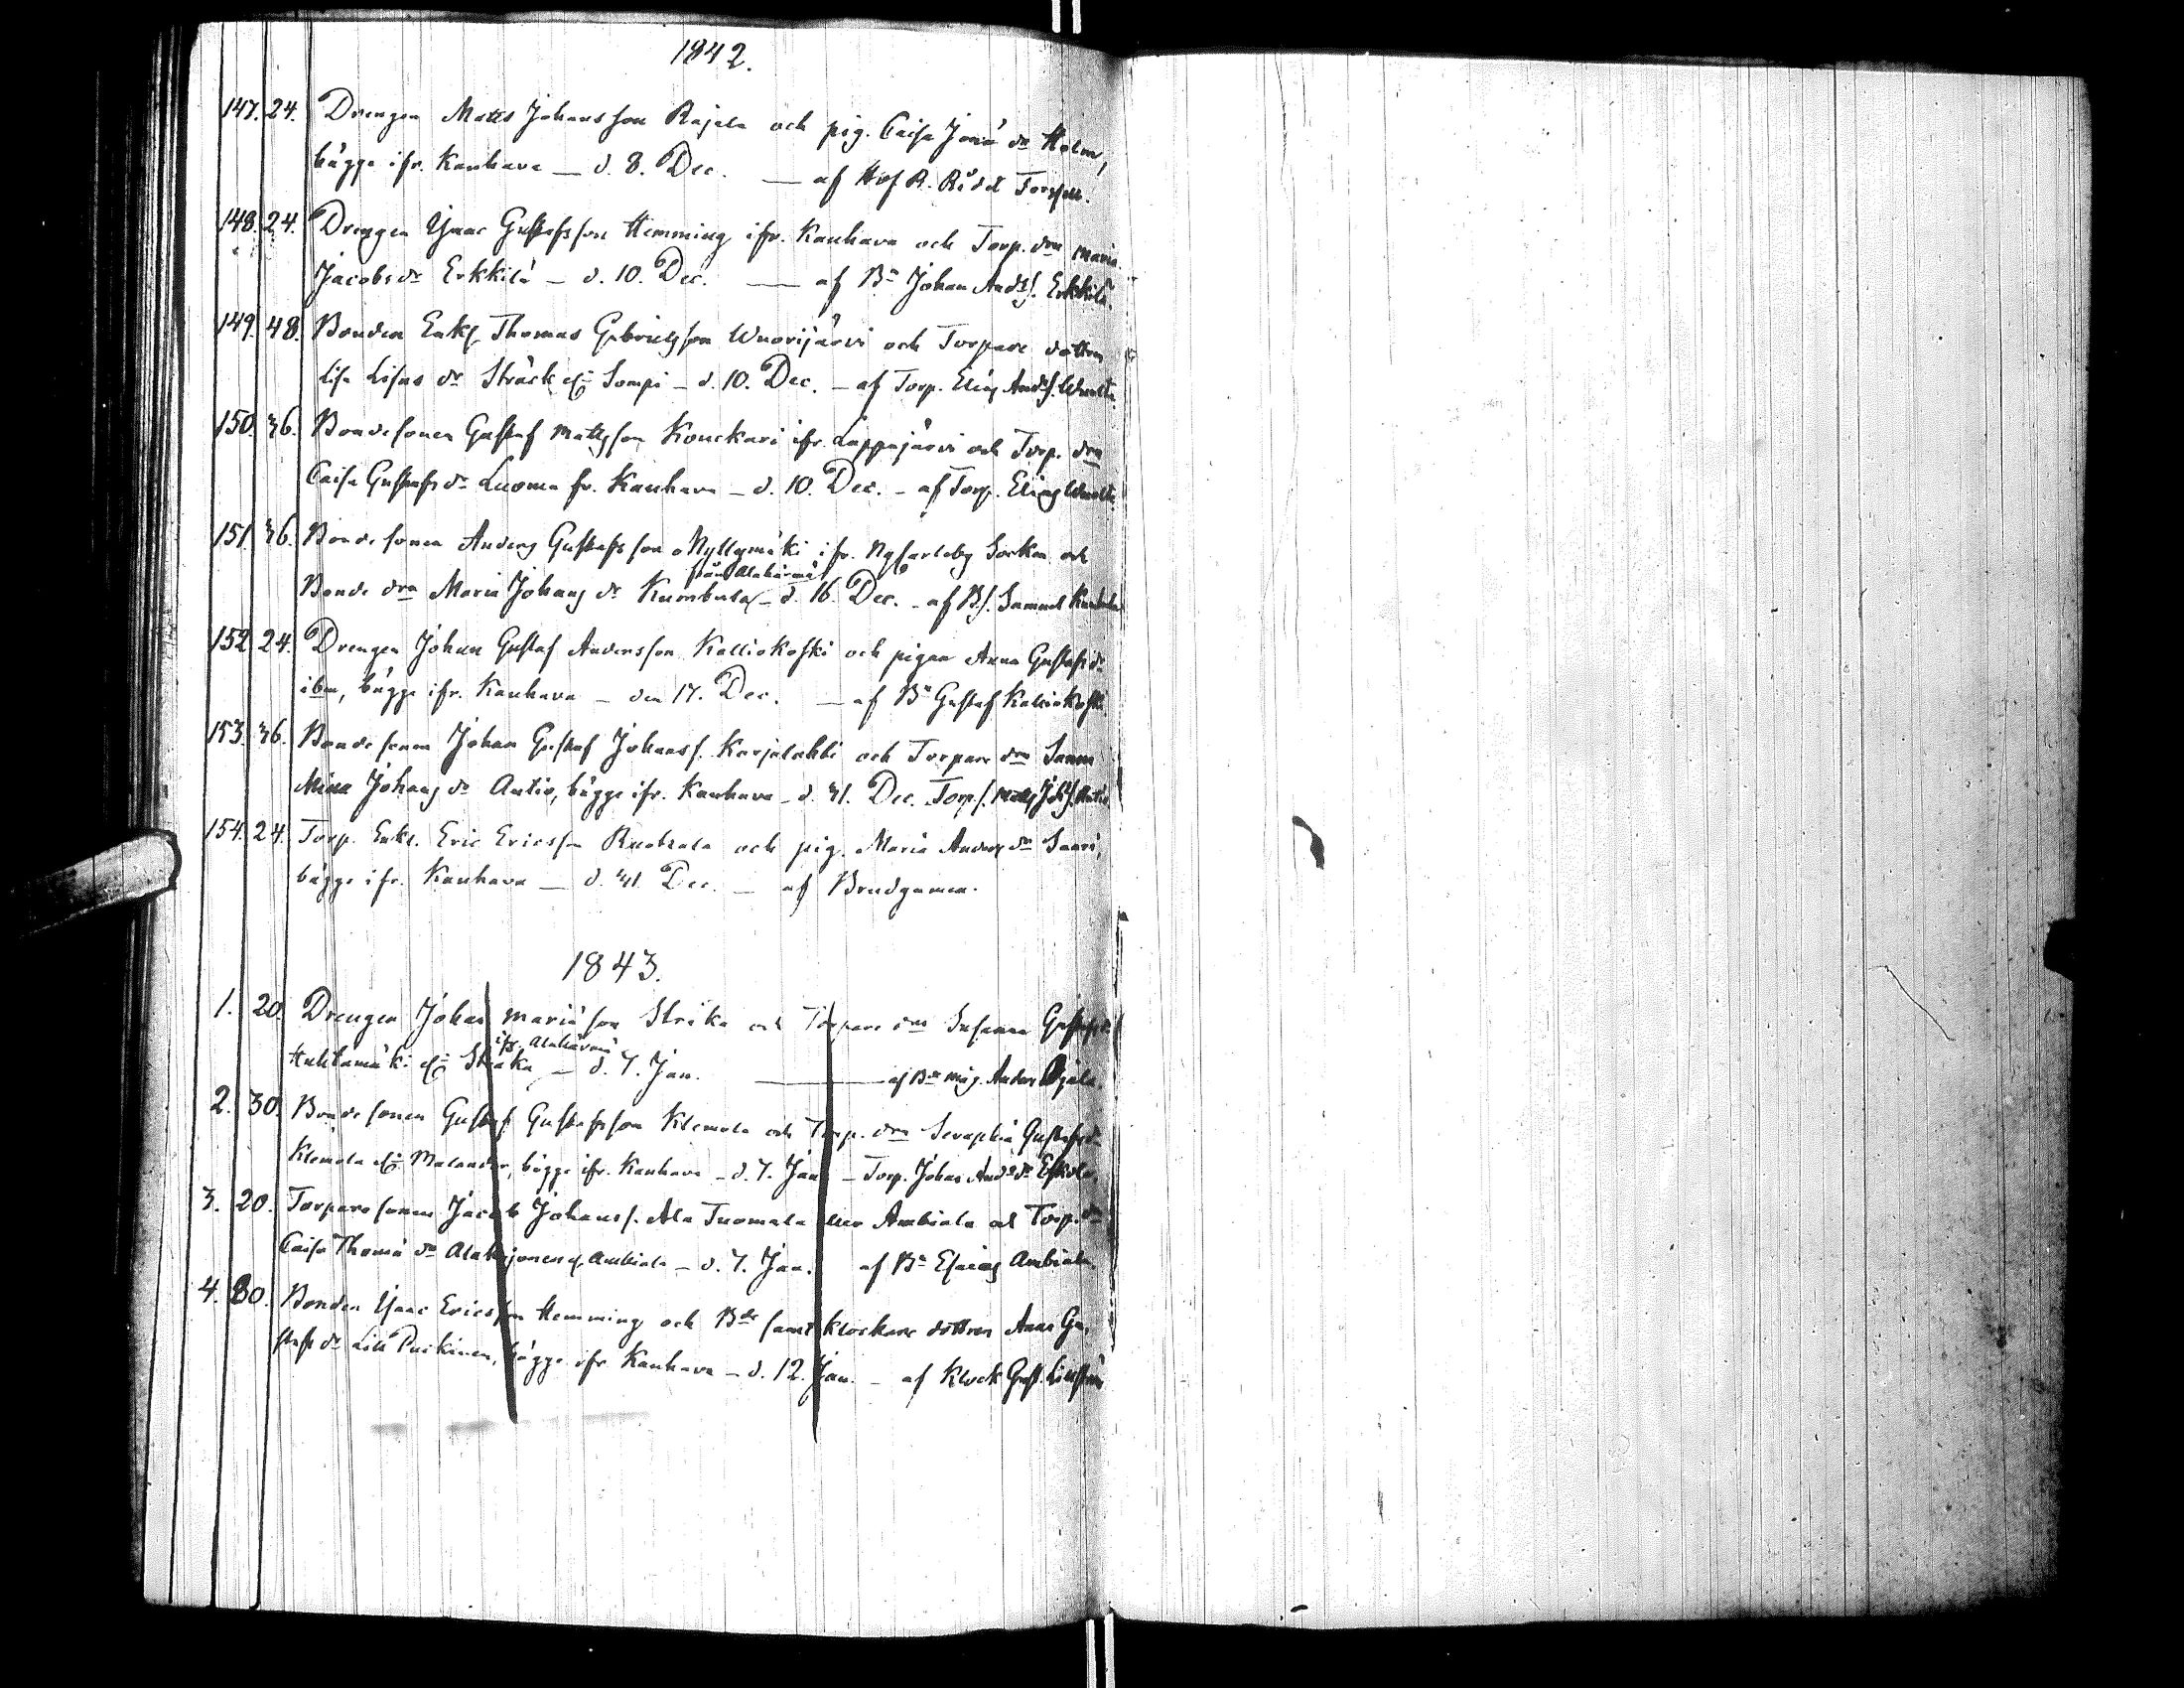 1842.
147. 24. Drengen Matts Johansson Rajala och pig. Caisa Jonä dr Holm,
bägge ifr. Kauhava — d. 8. Dec. — af Hof R. Rådet
148. 24. Drengen Isaac Gustafsson Hemming ifr. Kauhava och Torp. drn Maria
Jacobs dr Erkkilä — d. 10. Dec. — af Bn Johan And:s. Erkkilä.
149. 48. Bonden Enkl. Thomas Gabrielsson Wuorijärvi och Torpare dottren
Lisa Lisas dr Sträck Sompi — d. 10. Dec. — af Torp. Elias And:s.
150. 36. Bondesonen Gustaf Mattsson Konckari ifr. Lappajärvi och Torp. drn
Caisa Gustafs dr Luoma fr. Kauhava — d. 10. Dec. — af Torp. Elias
151. 36. Bondesonen Anders Gustafsson Myllymäki ifr. Nykarleby Socken och
från Alahärmä
Bonde drn Maria Johans dr — d. 16. Dec. — af Bs. Samuel
152. 24. Drengen Johan Gustaf Andersson Kalliokoski och pigan Anna Gustafs dr
ibm, bägge ifr. Kauhava — den 17. Dec. — af Bn Gustaf Kalliokoski.
153. 36. Bondesonen Johan Gustaf Johanss. Karjalahti och Torpare drn Sanna
Mina Johans dr Antio, bägge ifr. Kauhava — d. 31. Dec. Torp s. Matts
154. 24. Torp. Enkl. Eric Ericsson Ruotsala och pig. Maria Anders dr Saari,
bägge ifr. Kauhava — d. 31. Dec. — af Brudgumen.
1843.
1. 20. Drengen Johan Mariäson Strika och Torpare drn Susanna Gustafs dr
ifr. Alahärmä
Huhtamäki Straka — d. 7. Jan. — af Bn måg. Anders
2. 30. Bondesonen Gustaf Gustafsson Klemola och Torp. drn Seraphia Gustafs dr
Klemola Malander, bägge ifr. Kauhava — d. 7. Jan — Torp. Johan
3. 20. Torparesonen Jacob Johanss. Ala Tuomala eller Ambiala och Torp. drn
Caisa Thomä dr Ambiala — d. 7. Jan. af Bn Esaias Ambiala.
4. 80. Bonden Isaac Ericsson Hemming och Bde samt Klockare dottren Anna Gu-
stafs dr Lill Puikinen, bägge ifr Kauhava — d. 12. Jan. — af Klock Gust.